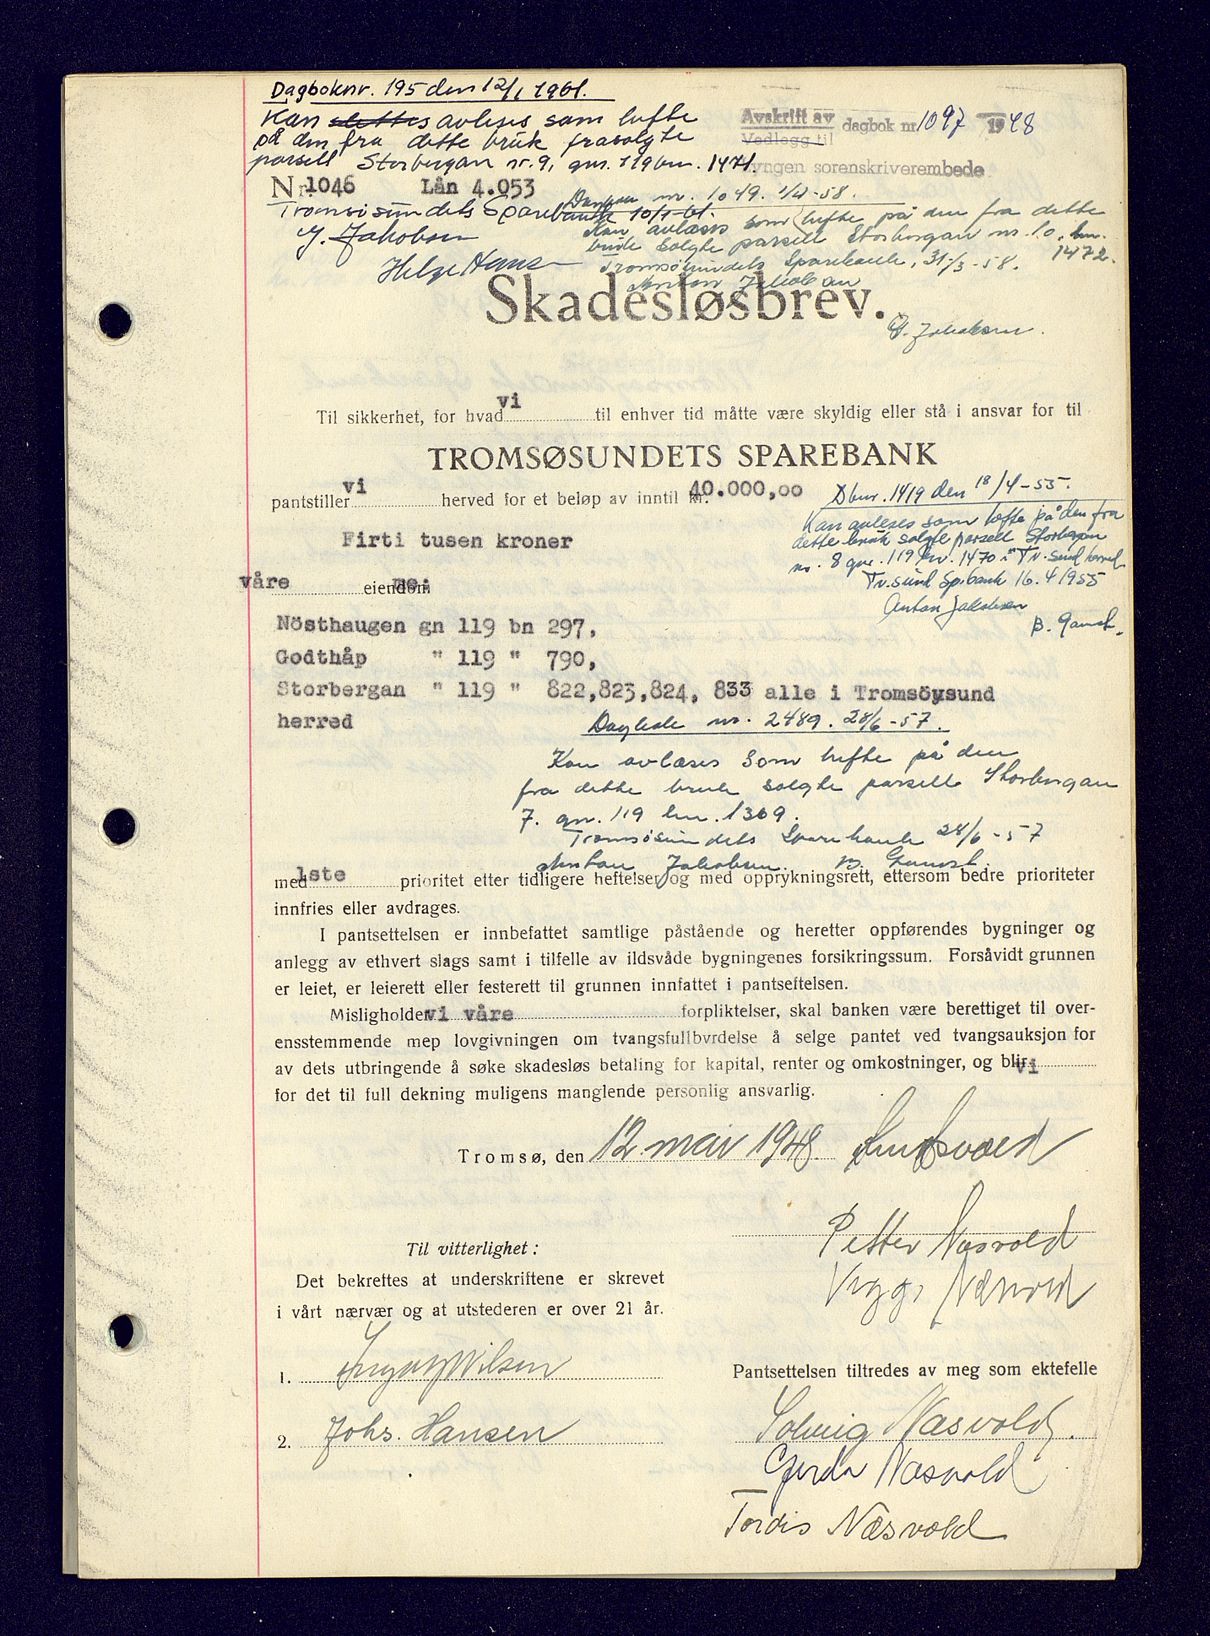 Dagboknr. 195 den 12/1 1961.
Kan slettes avleses som hefte
på den fra dette bruk frasolgte
parsell Storbergan nr. 9, gnr. 119 bnr. 1471.
Avskrift av
Vedlegg til
dagbok nr 1097 1948
Lyngen sorenskriverembede
Nr. 1046 Lån 4.053
Tromsøsundets Sparebank 10/1-61.
J. Jakobsen
Helge Hans
Dagbok nr. 1049. 1/4-58.
Kan avlæses som hefte på den fra dette
bruk solgte parsell Storbergan nr. 10. bnr.
1472.
Tromsøsundets Sparebank, 31/3-58.
Anton Jakobsen
J. Jakobsen.
Skadesløsbrev.
Til sikkerhet, for hvad vi til enhver tid måtte være skyldig eller stå i ansvar for til
TROMSØSUNDETS SPAREBANK
pantstiller vi herved for et beløp av inntil kr. 40.000,00
Firti tusen kroner
Dbnr. 1419 den 18/4-55.
Kan avleses som hefte på den fra
dette bruk solgte parsell Storbergan
nr. 8 gnr. 119 bnr. 1470 i Tr. sund herred
Tr. sund Sp.bank 16.4 1955
Anton Jakobsen
B. Gamst.
våre eiendom me:
Nösthaugen gn 119 bn 297,
Godthåp " 119 " 790,
Storbergan " 119 " 822,823,824, 833 alle i Tromsöysund
herred
Dagbok nr. 2489. 28/6-57.
Kan avlæses som hefte på den
fra dette bruk solgte parsell Storbergan
7. gnr. 119 bnr. 1369.
Tromsøsundets Sparebank 28/6-57
Anton Jakobsen. B. Gamst.
med 1ste prioritet etter tidligere heftelser og med opprykningsrett, ettersom bedre prioriteter
innfries eller avdrages.
I pantsettelsen er innbefattet samtlige påstående og heretter oppførendes bygninger og
anlegg av ethvert slags samt i tilfelle av ildsvåde bygningenes forsikringssum. Forsåvidt grunnen
er leiet, er leierett eller festerett til grunnen innfattet i pantsettelsen.
Misligholder vi våre forpliktelser, skal banken være berettiget til over-
ensstemmende mep lovgivningen om tvangsfullbvrdelse å selge pantet ved tvangsauksjon for
av dets utbringende å søke skadesløs betaling for kapital, renter og omkostninger, og blir vi
for det til full dekning muligens manglende personlig ansvarlig.
Tromsø, den 12 mai 1948.
Petter Næsvold
Viggo Næsvold
Til vitterlighet:
Det bekreftes at underskriftene er skrevet
i vårt nærvær og at utstederen er over 21 år.
1. Ingolf Nilsen
2. Johs. Hansen
Pantsettelsen tiltredes av meg som ektefelle
Solveig Næsvold.
Gerda Næsvold
Tordis Næsvold